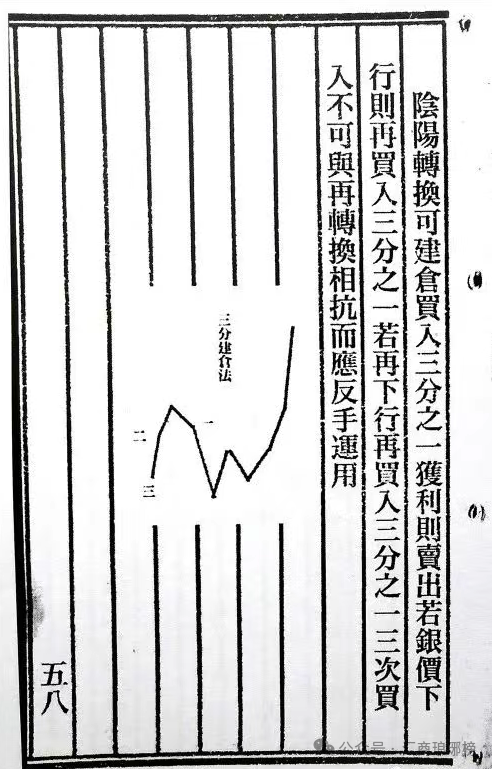 陰陽轉換可建倉買入三分之一獲利則賣出若銀價下
行則再買入三分之一若再下行再買入三分之一三次買
入不可與再轉換相抗而應反手運用
三分建倉法
一
二
三
五八
公众号